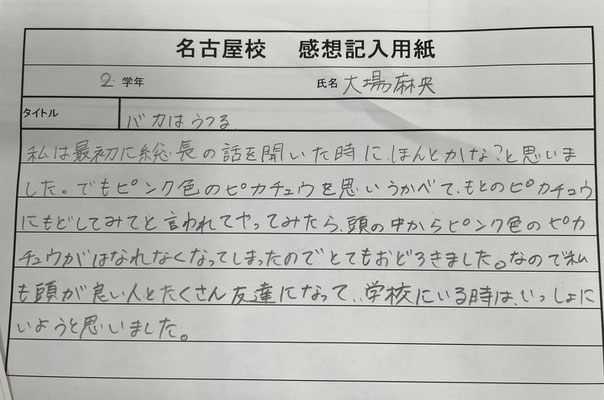 名古屋校 感想記入用紙
2 学年 氏名 大場麻央
タイトル バカはうつる
私は最初に総長の話を聞いた時に、ほんとかな?と思いま
した。でもピンク色のピカチュウを思いうかべて、もとのピカチュウ
にもどしてみてと言われてやってみたら、頭の中からピンク色のピカ
チュウがはなれなくなってしまったのでとてもおどろきました。なので私
も頭が良い人とたくさん友達になって、学校にいる時は、いっしょに
いようと思いました。